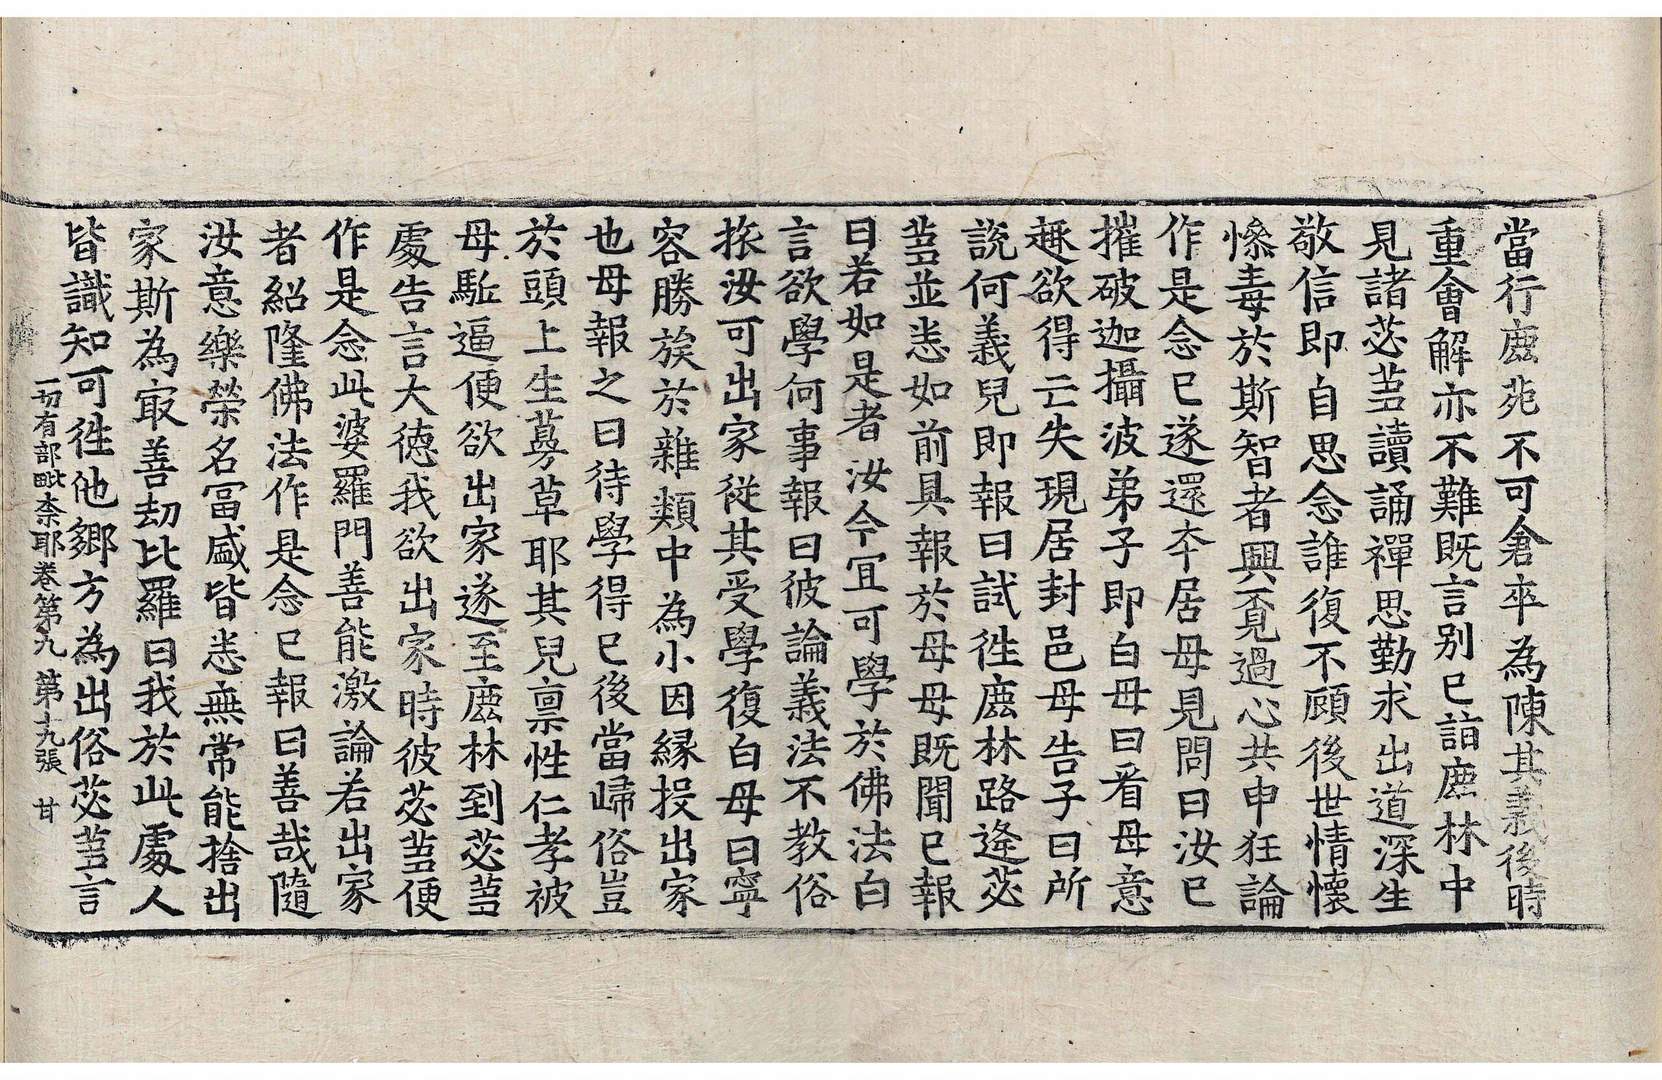 當行鹿苑不可倉卒為陳其義後時
重會解亦不難既言別已詣鹿林中
見諸苾蒭讀誦禪思勤求出道深生
敬信即自思念誰復不顧後世情懷
慘毒於斯智者興覓過心共申狂論
作是念已遂還本居母見問曰汝已
摧破迦攝波弟子即白母曰看母意
趣欲得亡失現居封邑母告子曰所
說何義兒即報曰試徃鹿林路逢苾
蒭並悉如前具報於母母既聞已報
曰若如是者汝今宜可學於佛法白
言欲學何事報曰彼論義法不教俗
旅汝可出家從其受學復白母曰寧
容勝族於雜類中為小因緣投出家
也母報之曰待學得已後當歸俗豈
於頭上生蒡草耶其兒禀性仁孝被
母駈逼便欲出家遂至鹿林到苾蒭
處告言大德我欲出家時彼苾蒭便
作是念此婆羅門善能激論若出家
者紹隆佛法作是念已報曰善哉隨
汝意樂榮名冨盛皆悉無常能捨出
家斯為㝡善劫比羅曰我於此處人
皆識知可徃他鄉方為出俗苾蒭言
一切有部毗奈耶卷第九 第十九張 甘